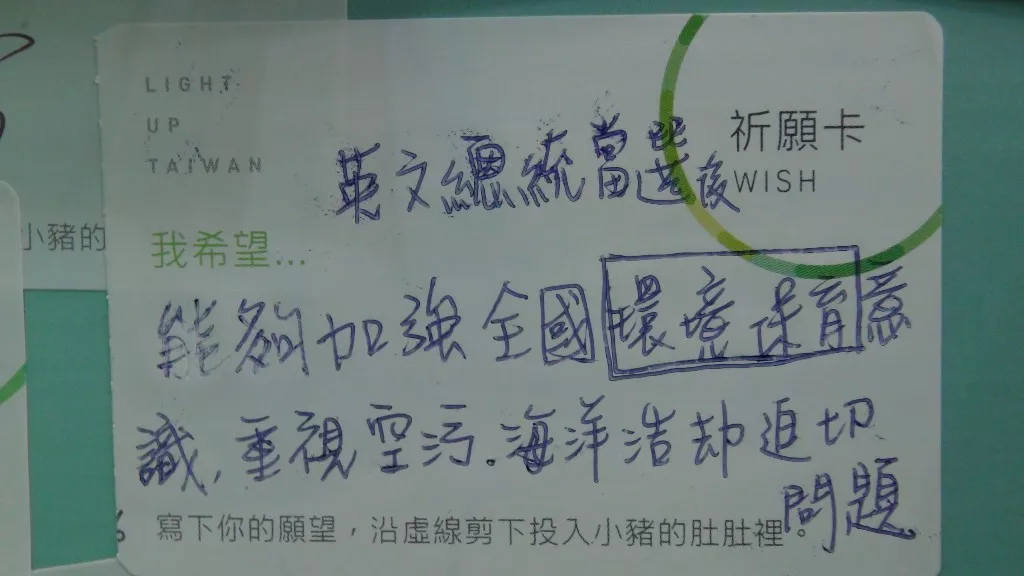 LIGHT
UP
TAIWAN
祈願卡
WISH
英文總統當選後
小豬的
我希望...
能夠加強全國環境保育意
識,重視空污.海洋浩劫迫切
問題.
寫下你的願望，沿虛線剪下投入小豬的肚肚裡。